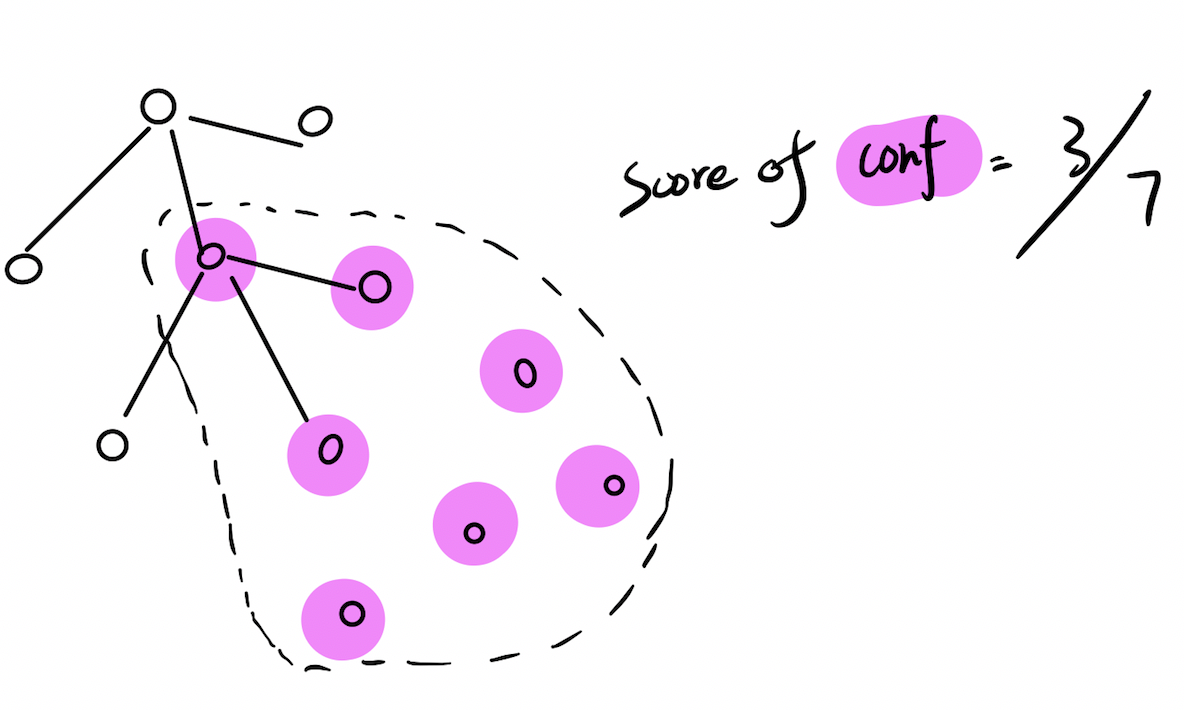 Score of conf = 3/7